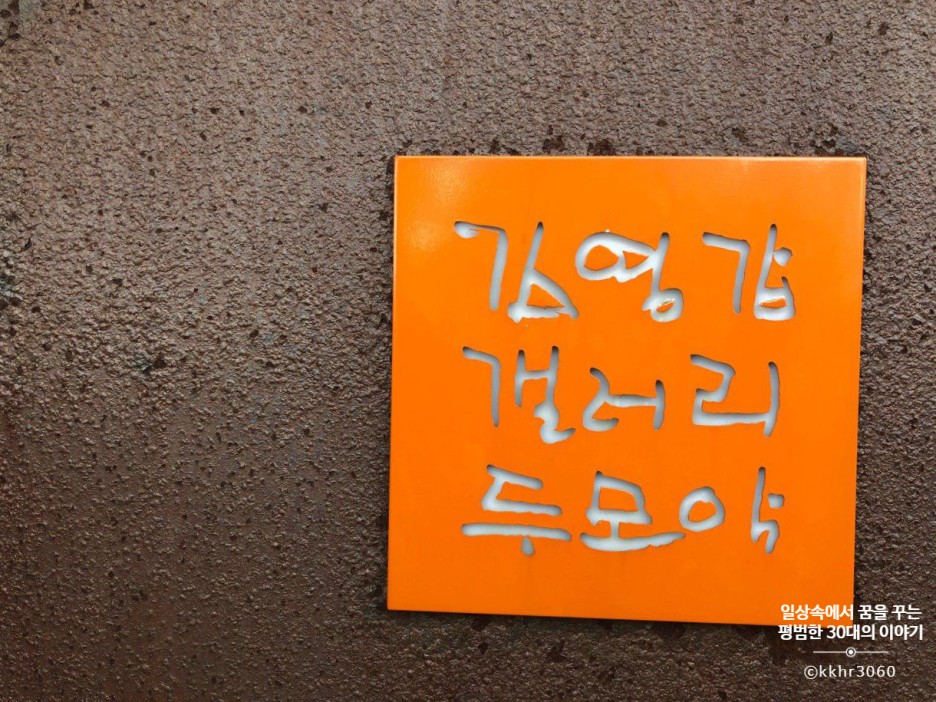 김영갑
갤러리
두모악
일상속에서 꿈을 꾸는
평범한 30대의 이야기
©kkhr3060